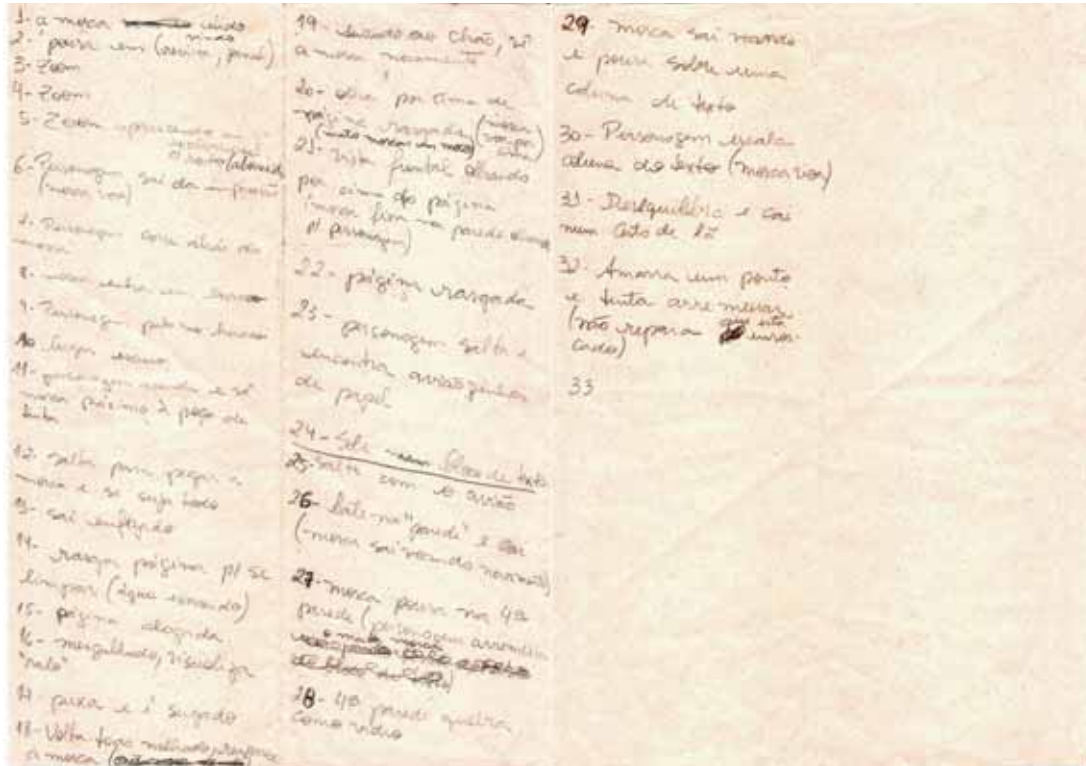 1- a mosca vindo
2- pousa em
3- Zoom
4- Zoom
5- Zoom
6- Personagem sai da
(mosca voa)
7- Personagem corre atrás da
mosca
8- mosca entra em buraco
9- Personagem pula no buraco
10- lugar escuro
11- personagem acende e vê
mosca próximo à poço de
tinta
12- salta para pegar a
mosca e se suja todo
13- sai
14- rasga página p/ se
limpar (água)
15- página alagada
16- mergulhado, visualiza
"ralo"
17- puxa e é sugado
18- Volta todo molhado,
a mosca
19- ao chão, vê
a mosca novamente
20- olha por cima de
página rasgada
21- vista frontal olhando
por cima da página
p/ personagem)
22- página rasgada
23- personagem salta e
encontra aviãozinho
de papel
24- Sobe bloco de texto
25- Salta com o avião
26- bate na "parede" e cai
(mosca sai voando novamente)
27- mosca pousa na 4ª
parede (personagem arremessa
28- 4ª parede quebra
como vidro
29- mosca sai voando
e pousa sobre uma
coluna de texto
30- Personagem escala
coluna de texto (mosca voa)
31- Desequilibra e cai
num cesto de lã
32- Amarra um ponto
e tenta arremessar
(não repara que está enros-
cado)
33